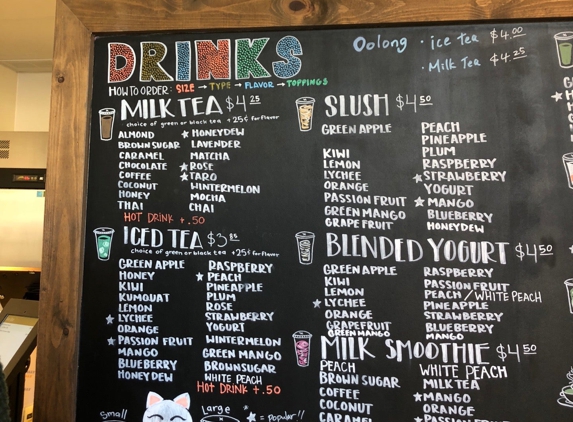 DRINKS
HOW TO ORDER: SIZE → TYPE → FLAVOR → TOPPINGS
Oolong · ice tea $4.00
· Milk Tea $4.25
MILK TEA $4 25
choice of green or black tea +25¢ for flavor
ALMOND
BROWN SUGAR
CARAMEL
CHOCOLATE
COFFEE
COCONUT
HONEY
THAI
★ HONEYDEW
LAVENDER
MATCHA
★ ROSE
★ TARO
WINTERMELON
MOCHA
CHAI
HOT DRINK +.50
ICED TEA $3 85
choice of green or black tea +25¢ for flavor
GREEN APPLE
HONEY
KIWI
KUMQUAT
LEMON
★ LYCHEE
ORANGE
★ PASSION FRUIT
MANGO
BLUEBERRY
HONEYDEW
RASPBERRY
★ PEACH
PINEAPPLE
PLUM
ROSE
STRAWBERRY
YOGURT
WINTERMELON
GREEN MANGO
BROWNSUGAR
WHITE PEACH
HOT DRINK +.50
Small
Large
★ = Popular!!
SLUSH $4 50
GREEN APPLE
KIWI
LEMON
LYCHEE
ORANGE
PASSION FRUIT
GREEN MANGO
GRAPE FRUIT
PEACH
PINEAPPLE
PLUM
RASPBERRY
★ STRAWBERRY
YOGURT
★ MANGO
BLUEBERRY
HONEYDEW
BLENDED YOGURT $4 50
GREEN APPLE
KIWI
LEMON
★ LYCHEE
ORANGE
GRAPEFRUIT
GREEN MANGO
RASPBERRY
PASSION FRUIT
PEACH / WHITE PEACH
PINEAPPLE
STRAWBERRY
BLUEBERRY
MANGO
MILK SMOOTHIE $4 50
PEACH
BROWN SUGAR
COFFEE
COCONUT
CARAMEL
WHITE PEACH
MILK TEA
★ MANGO
ORANGE